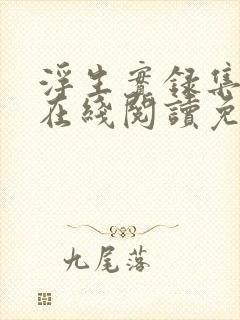 浮生實錄集
在綫閱讀免
九尾落